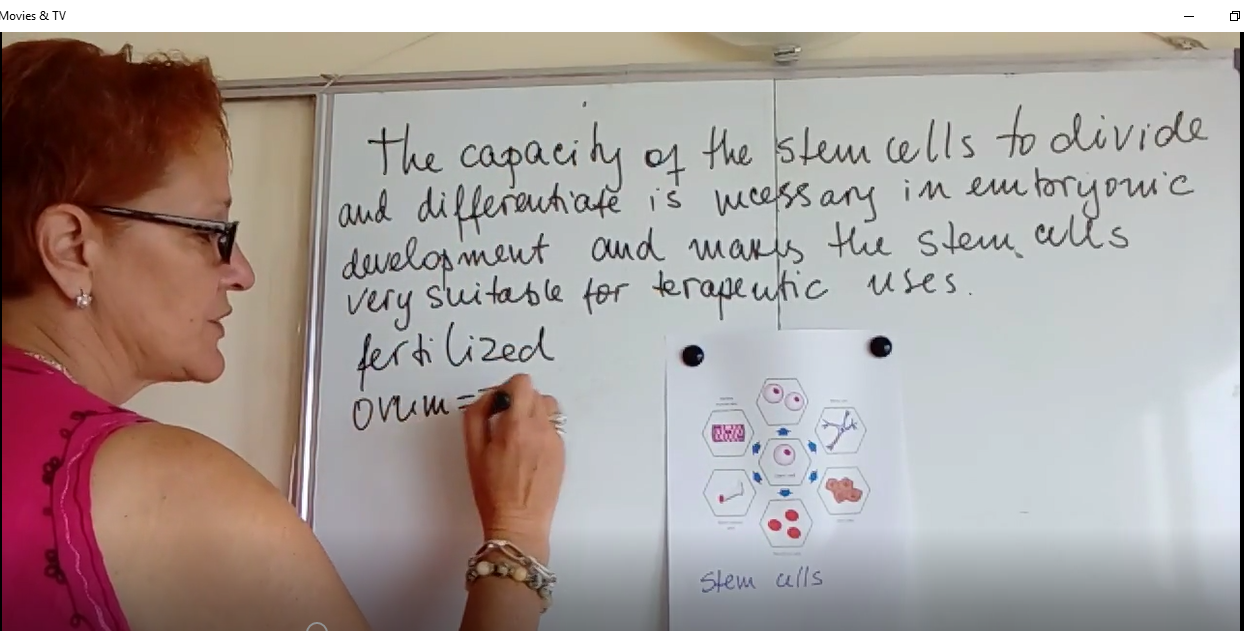 Movies & TV
The capacity of the stem cells to divide
and differentiate is necessary in embryonic
development and makes the stem cells
very suitable for terapeutic uses.
fertilized
ovum =
stem cells